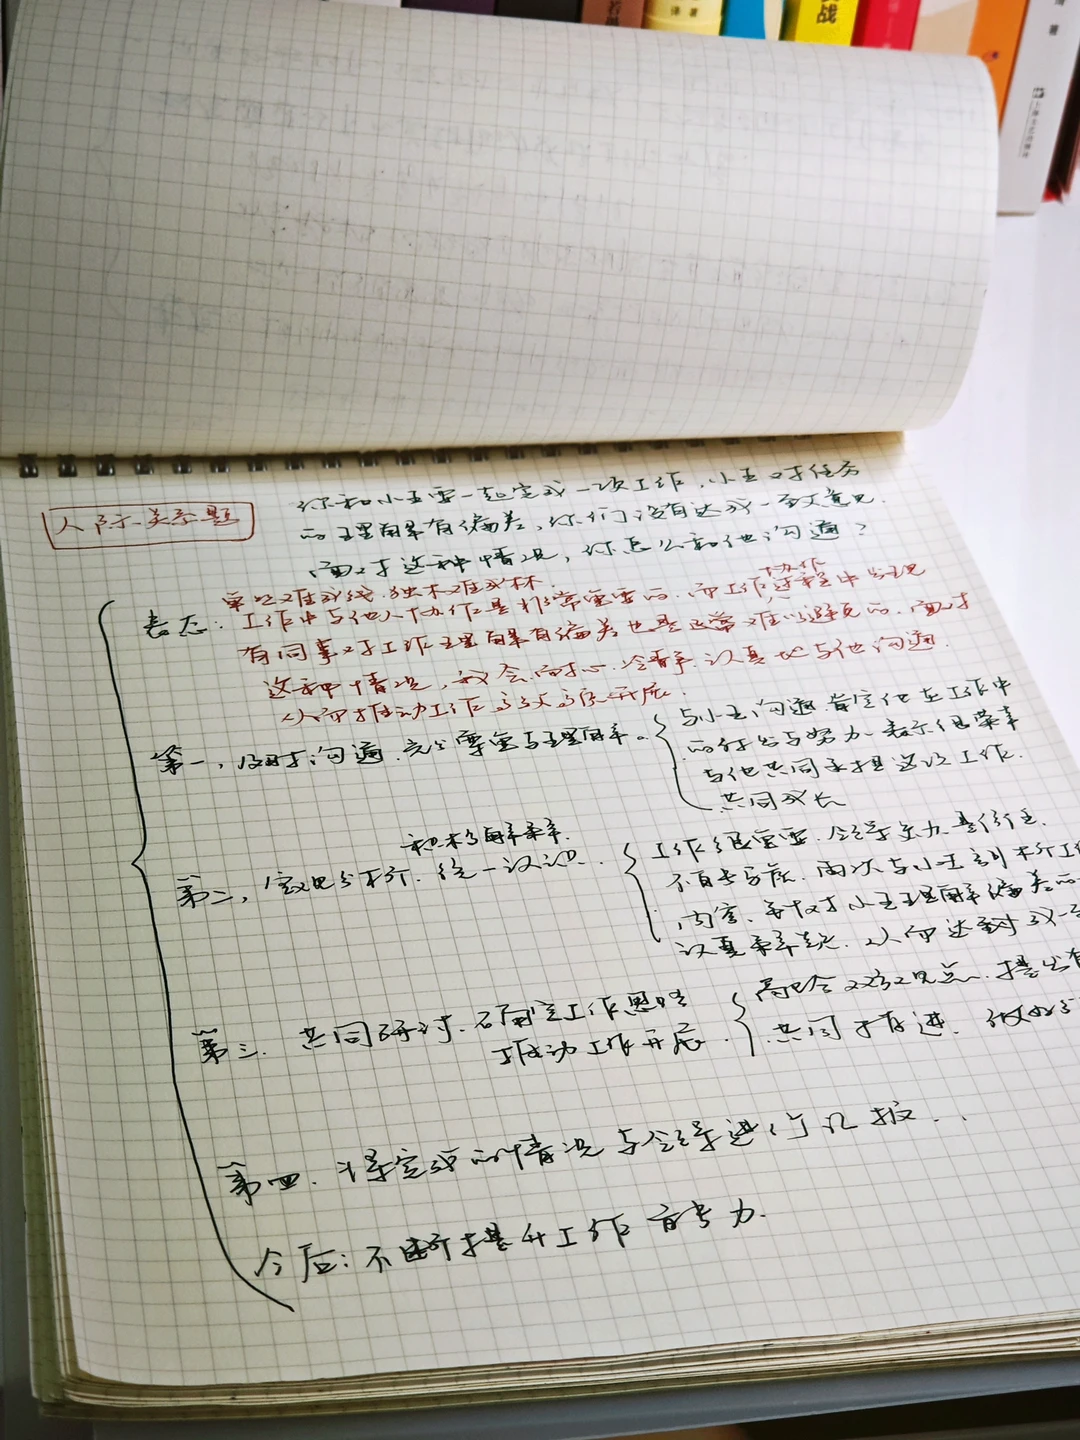 人际关系题
你和小王要一起完成一项工作，小王对任务
的理解有偏差，你们没有达成一致意见.
面对这种情况，你怎么和他沟通？
单丝难成线，独木难成林.
表态：工作中与他人协作是非常重要的，而工作协作过程中出现
有同事对工作理解有偏差也是正常难以避免的.面对
这种情况，我会耐心、冷静、认真地与他沟通.
从而推动工作高效高质开展.
第一，及时沟通，充分尊重与理解.
与小王沟通，肯定他在工作中
的付出与努力.表示很荣幸
与他共同承担这次工作.
共同成长
第二，客观分析，积极解释.统一认识.
工作很重要.领导
再次与小王剖析工作
内容，并针对小王理解偏差的
认真解释.从而达到双一
第三.共同研讨.确定工作思路
推动工作开展.
融合双方观点.提出有
共同推进.做好
第四.将完成的情况与领导进行汇报..
今后：不断提升工作能力.
译 著
战
著
上海文艺出版社